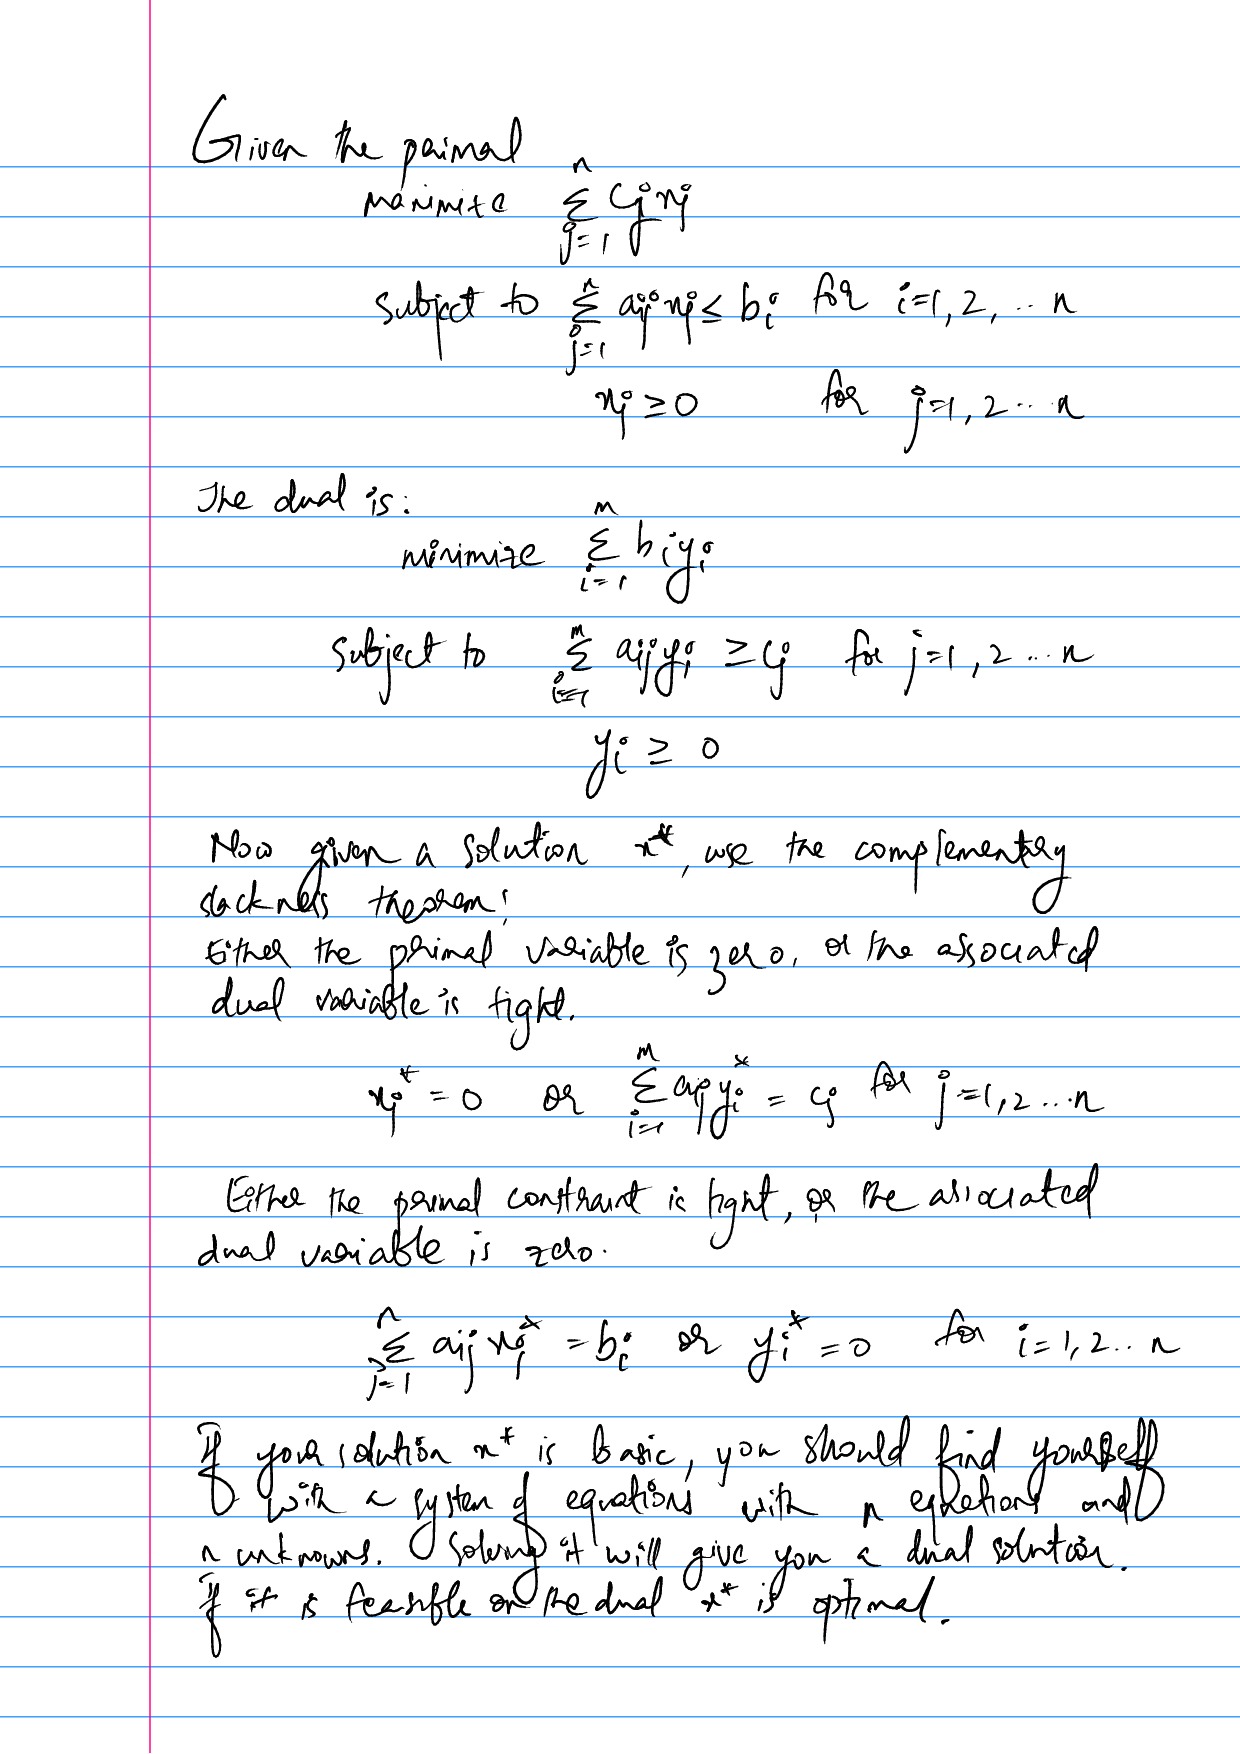 Given the primal
maximize \sum_{j=1}^{n} c_j x_j
subject to \sum_{j=1}^{n} a_{ij} x_j ≤ b_i for i=1, 2, ... n
x_j ≥ 0 for j=1, 2 ... n
The dual is:
minimize \sum_{i=1}^{m} b_i y_i
subject to \sum_{i=1}^{m} a_{ij} y_i ≥ c_j for j=1, 2 ... n
y_i ≥ 0
Now given a solution x*, use the complementry
slackness theorem:
Either the primal variable is zero, or the associated
dual variable is tight.
x_j* = 0 or \sum_{i=1}^{m} a_{ij} y_i* = c_j for j=1, 2 ... n
Either the primal constraint is tight, or the associated
dual variable is zero.
\sum_{j=1}^{n} a_{ij} x_j* = b_i or y_i* = 0 for i=1, 2 .. n
If your solution x* is basic, you should find yourself
with a system of equations with n equations and
n unknowns. Solving it will give you a dual solution.
If it is feasible on the dual x* is optimal.